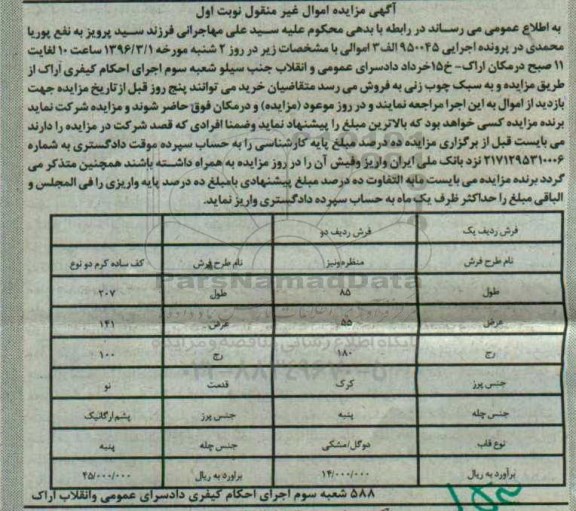 آگهی مزایده اموال غیر منقول نوبت اول
به اطلاع عمومی می رساند در رابطه با بدهی محکوم علیه سید علی مهاجرانی فرزند سید پرویز به نفع پوریا
محمدی در پرونده اجرایی ۹۵۰۰۴۵ الف۳ اموالی با مشخصات زیر در روز ۲ شنبه مورخه ۱۳۹۶/۳/۱ ساعت ۱۰ لغایت
۱۱ صبح درمکان اراک- خ۱۵خرداد دادسرای عمومی و انقلاب جنب سیلو شعبه سوم اجرای احکام کیفری اراک از
طریق مزایده و به سبک چوب زنی به فروش می رسد متقاضیان خرید می توانند پنج روز قبل ازتاریخ مزایده جهت
بازدید از اموال به این اجرا مراجعه نمایند و در روز موعود (مزایده) و درمکان فوق حاضر شوند و مزایده شرکت نماید
برنده مزایده کسی خواهد بود که بالاترین مبلغ را پیشنهاد نماید وضمنا افرادی که قصد شرکت در مزایده را دارند
می بایست قبل از برگزاری مزایده ده درصد مبلغ پایه کارشناسی را به حساب سپرده موقت دادگستری به شماره
۲۱۷۱۲۹۵۳۱۰۰۰۶ نزد بانک ملی ایران واریز وفیش آن را در روز مزایده به همراه داشته باشند همچنین متذکر می
گردد برنده مزایده می بایست مابه التفاوت ده درصد مبلغ پیشنهادی بامبلغ ده درصد پایه واریزی را فی المجلس و
الباقی مبلغ را حداکثر ظرف یک ماه به حساب سپرده دادگستری واریز نماید.
فرش ردیف یک فرش ردیف دو
نام طرح فرش منظره ونیز نام طرح فرش کف ساده کرم دو نوع
طول ۸۵ طول ۲۰۷
عرض ۵۵ عرض ۱۴۱
رج ۱۸۰ رج ۱۰۰
جنس پرز کرک قدمت نو
جنس چله پنبه جنس پرز پشم/ارگانیک
نوع قاب دوگل/مشکی جنس چله پنبه
برآورد به ریال ۱۴/۰۰۰/۰۰۰ برآورد به ریال ۴۵/۰۰۰/۰۰۰
۵۸۸ شعبه سوم اجرای احکام کیفری دادسرای عمومی وانقلاب اراک
ParsNamadData